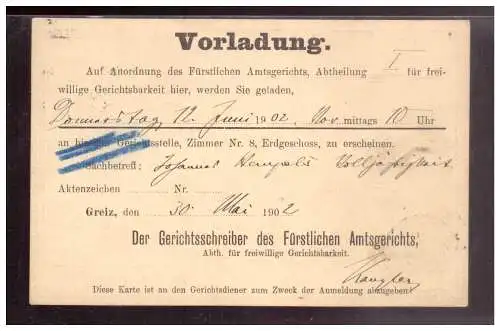 Vorladung.
Auf Anordnung des Fürstlichen Amtsgerichts, Abtheilung I für frei-
willige Gerichtsbarkeit hier, werden Sie geladen,
Donnerstag, 12. Juni 1902, Vor mittags 10 Uhr
an hiesiger Gerichtsstelle, Zimmer Nr. 8, Erdgeschoss, zu erscheinen.
Sachbetreff: Johannes Hempels Volljährigkeit
Aktenzeichen Nr.
Greiz, den 30 Mai 1902
Der Gerichtsschreiber des Fürstlichen Amtsgerichts,
Abth. für freiwillige Gerichtsbarkeit.
Diese Karte ist an den Gerichtsdiener zum Zweck der Anmeldung abzugeben.